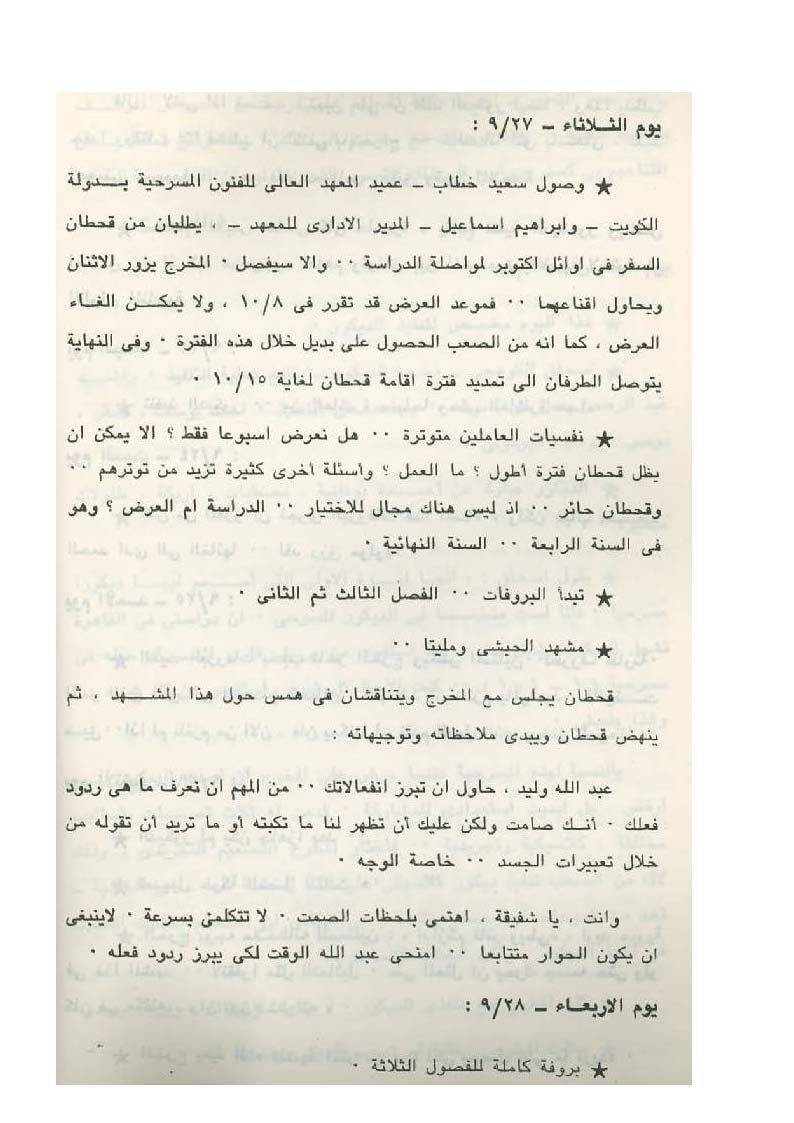 يوم الثـلاثاء – ٩/٢٧ :
★ وصول سعيد خطاب – عميد المعهد العالى للفنون المسرحية بـــدولة
الكويت – وابراهيم اسماعيل – المدير الادارى للمعهد – ، يطلبان من قحطان
السفر فى اوائل اكتوبر لمواصلة الدراسة ٠٠ والا سيفصل ٠ المخرج يزور الاثنان
ويحاول اقناعهما ٠٠ فموعد العرض قد تقرر فى ١٠/٨ ، ولا يمكــن الغــاء
العرض ، كما انه من الصعب الحصول على بديل خلال هذه الفترة ٠ وفى النهاية
يتوصل الطرفان الى تمديد فترة اقامة قحطان لغاية ١٠/١٥ ٠
★ نفسيات العاملين متوترة ٠٠ هل نعرض اسبوعا فقط ؟ الا يمكن ان
يظل قحطان فترة أطول ؟ ما العمل ؟ وأسئلة أخرى كثيرة تزيد من توترهم ٠٠
وقحطان حائر ٠٠ اذ ليس هناك مجال للاختيار ٠٠ الدراسة ام العرض ؟ وهو
فى السنة الرابعة ٠٠ السنة النهائية ٠
★ تبدأ البروفات ٠٠ الفصل الثالث ثم الثانى ٠
★ مشهد الحبشى ومليتا ٠٠
قحطان يجلس مع المخرج ويتناقشان فى همس حول هذا المشــهد ، ثم
ينهض قحطان ويبدى ملاحظاته وتوجيهاته :
عبد الله وليد ، حاول ان تبرز انفعالاتك ٠٠ من المهم ان نعرف ما هى ردود
فعلك ٠ أنــك صامت ولكن عليك أن تظهر لنا ما تكبته أو ما تريد أن تقوله من
خلال تعبيرات الجسد ٠٠ خاصة الوجه ٠
وانت ، يا شفيقة ، اهتمى بلحظات الصمت ٠ لا تتكلمى بسرعة ٠ لاينبغى
ان يكون الحوار متتابعا ٠٠ امنحى عبد الله الوقت لكى يبرز ردود فعله ٠
يوم الاربعـاء – ٩/٢٨ :
★ بروفة كاملة للفصول الثلاثة ٠